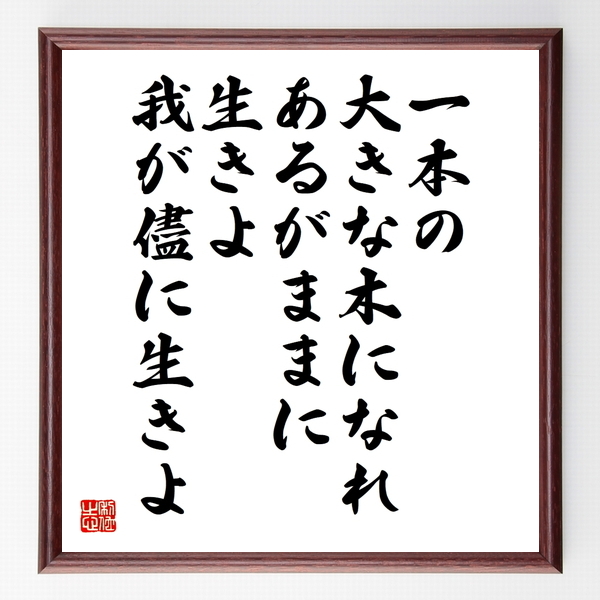 一本の
大きな木になれ
あるがままに
生きよ
我が儘に生きよ